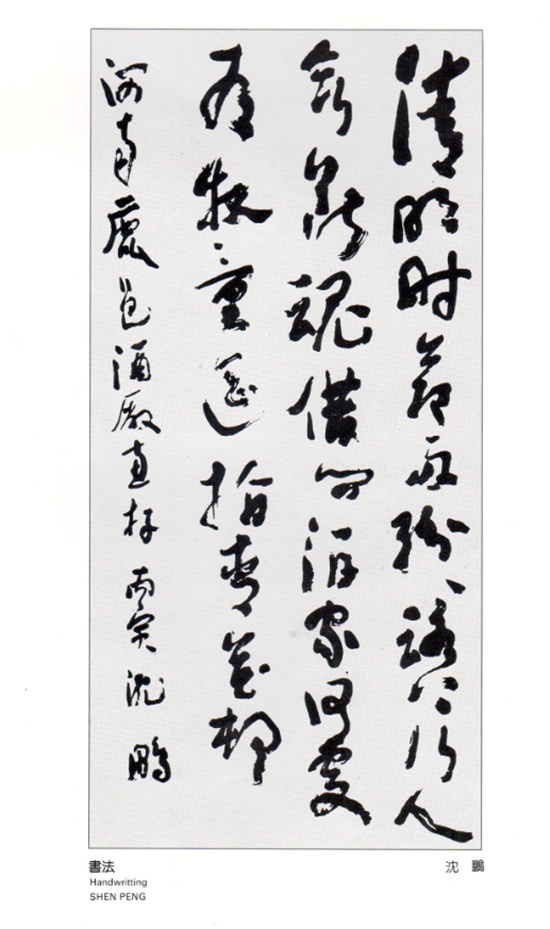 清明时节雨纷纷路上行人
欲断魂借问酒家何處
有牧童遥指杏花村
河南鹿邑酒廠惠存 丙寅 沈鹏
書法
沈 鵬
Handwritting
SHEN PENG